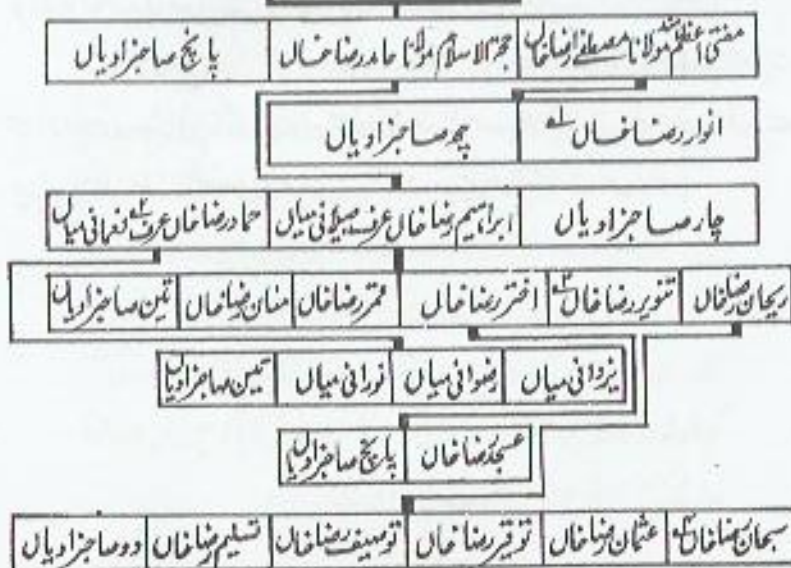 مفتی اعظم ہند مولانا مصطفےٰ رضا خاں حجۃ الاسلام مولانا حامد رضا خاں پانچ صاحبزادیاں
انور رضا خاں چھ صاحبزادیاں
چار صاحبزادیاں ابراہیم رضا خاں عرف جیلانی میاں حماد رضا خاں عرف نعمانی میاں
ریحان رضا خاں تنویر رضا خاں اختر رضا خاں قمر رضا خاں منان رضا خاں تین صاحبزادیاں
یزدانی میاں رضوانی میاں نورانی میاں تین صاحبزادیاں
عسجد رضا خاں پانچ صاحبزادیاں
سبحان رضا خاں عثمان رضا خاں توقیر رضا خاں توصیف رضا خاں تسلیم رضا خاں دو صاحبزادیاں